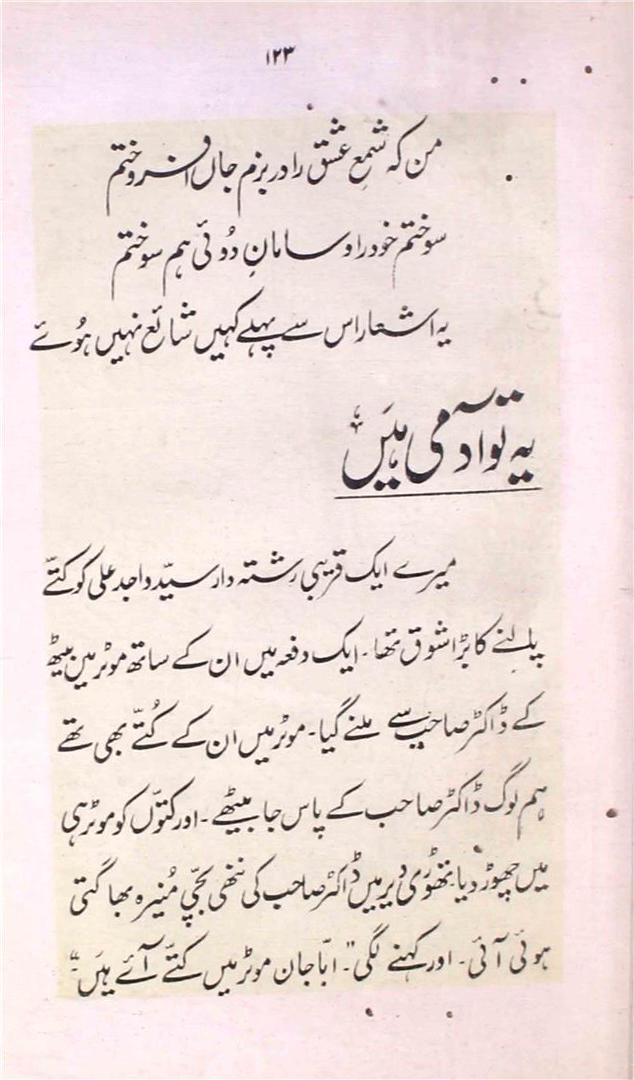 ۱۲۳
من کہ شمعِ عشق را در بزم جاں افروختم
سوختم خود را و سامانِ دُوئی ہم سوختم
یہ اشعار اس سے پہلے کہیں شائع نہیں ہُوئے
یہ تو آدمی ہیَں
میرے ایک قریبی رشتہ دار سیّد واجد علی کو کتّے
پالنے کا بڑا شوق تھا۔ ایک دفعہ میں ان کے ساتھ موٹر میں بیٹھ
کے ڈاکٹر صاحب سے ملنے گیا۔ موٹر میں ان کے کُتّے بھی تھے
ہم لوگ ڈاکٹر صاحب کے پاس جا بیٹھے۔ اور کتوّں کو موٹر ہی
میں چھوڑ دیا۔ تھوڑی دیر میں ڈاکٹر صاحب کی ننھی بچّی مُنیرہ بھاگتی
ہوئی آئی۔ اور کہنے لگی "۔ ابّا جان موٹر میں کتّے آئے ہیَں۔"